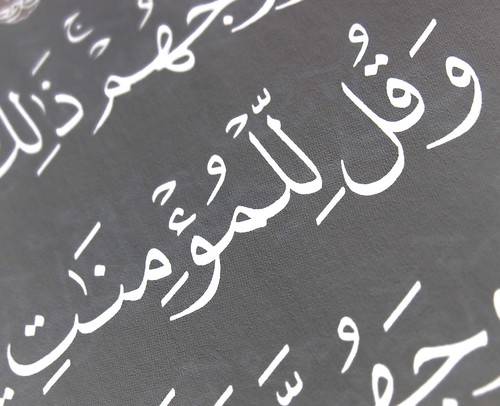 رُوجَهُمْ ذَٰلِك
وَقُل لِّلْمُؤْمِنَٰتِ
جَهُنَّ